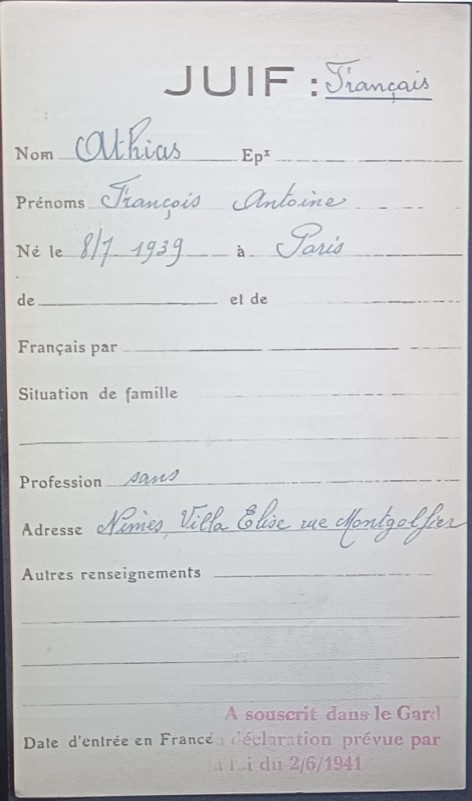 JUIF : Français
Nom Athias Epx
Prénoms François Antoine
Né le 8/7 1939 à Paris
de et de
Français par
Situation de famille
Profession sans
Adresse Nimes, Villa Elise rue Montgolfier
Autres renseignements
A souscrit dans le Gard
Date d'entrée en France la déclaration prévue par
la loi du 2/6/1941